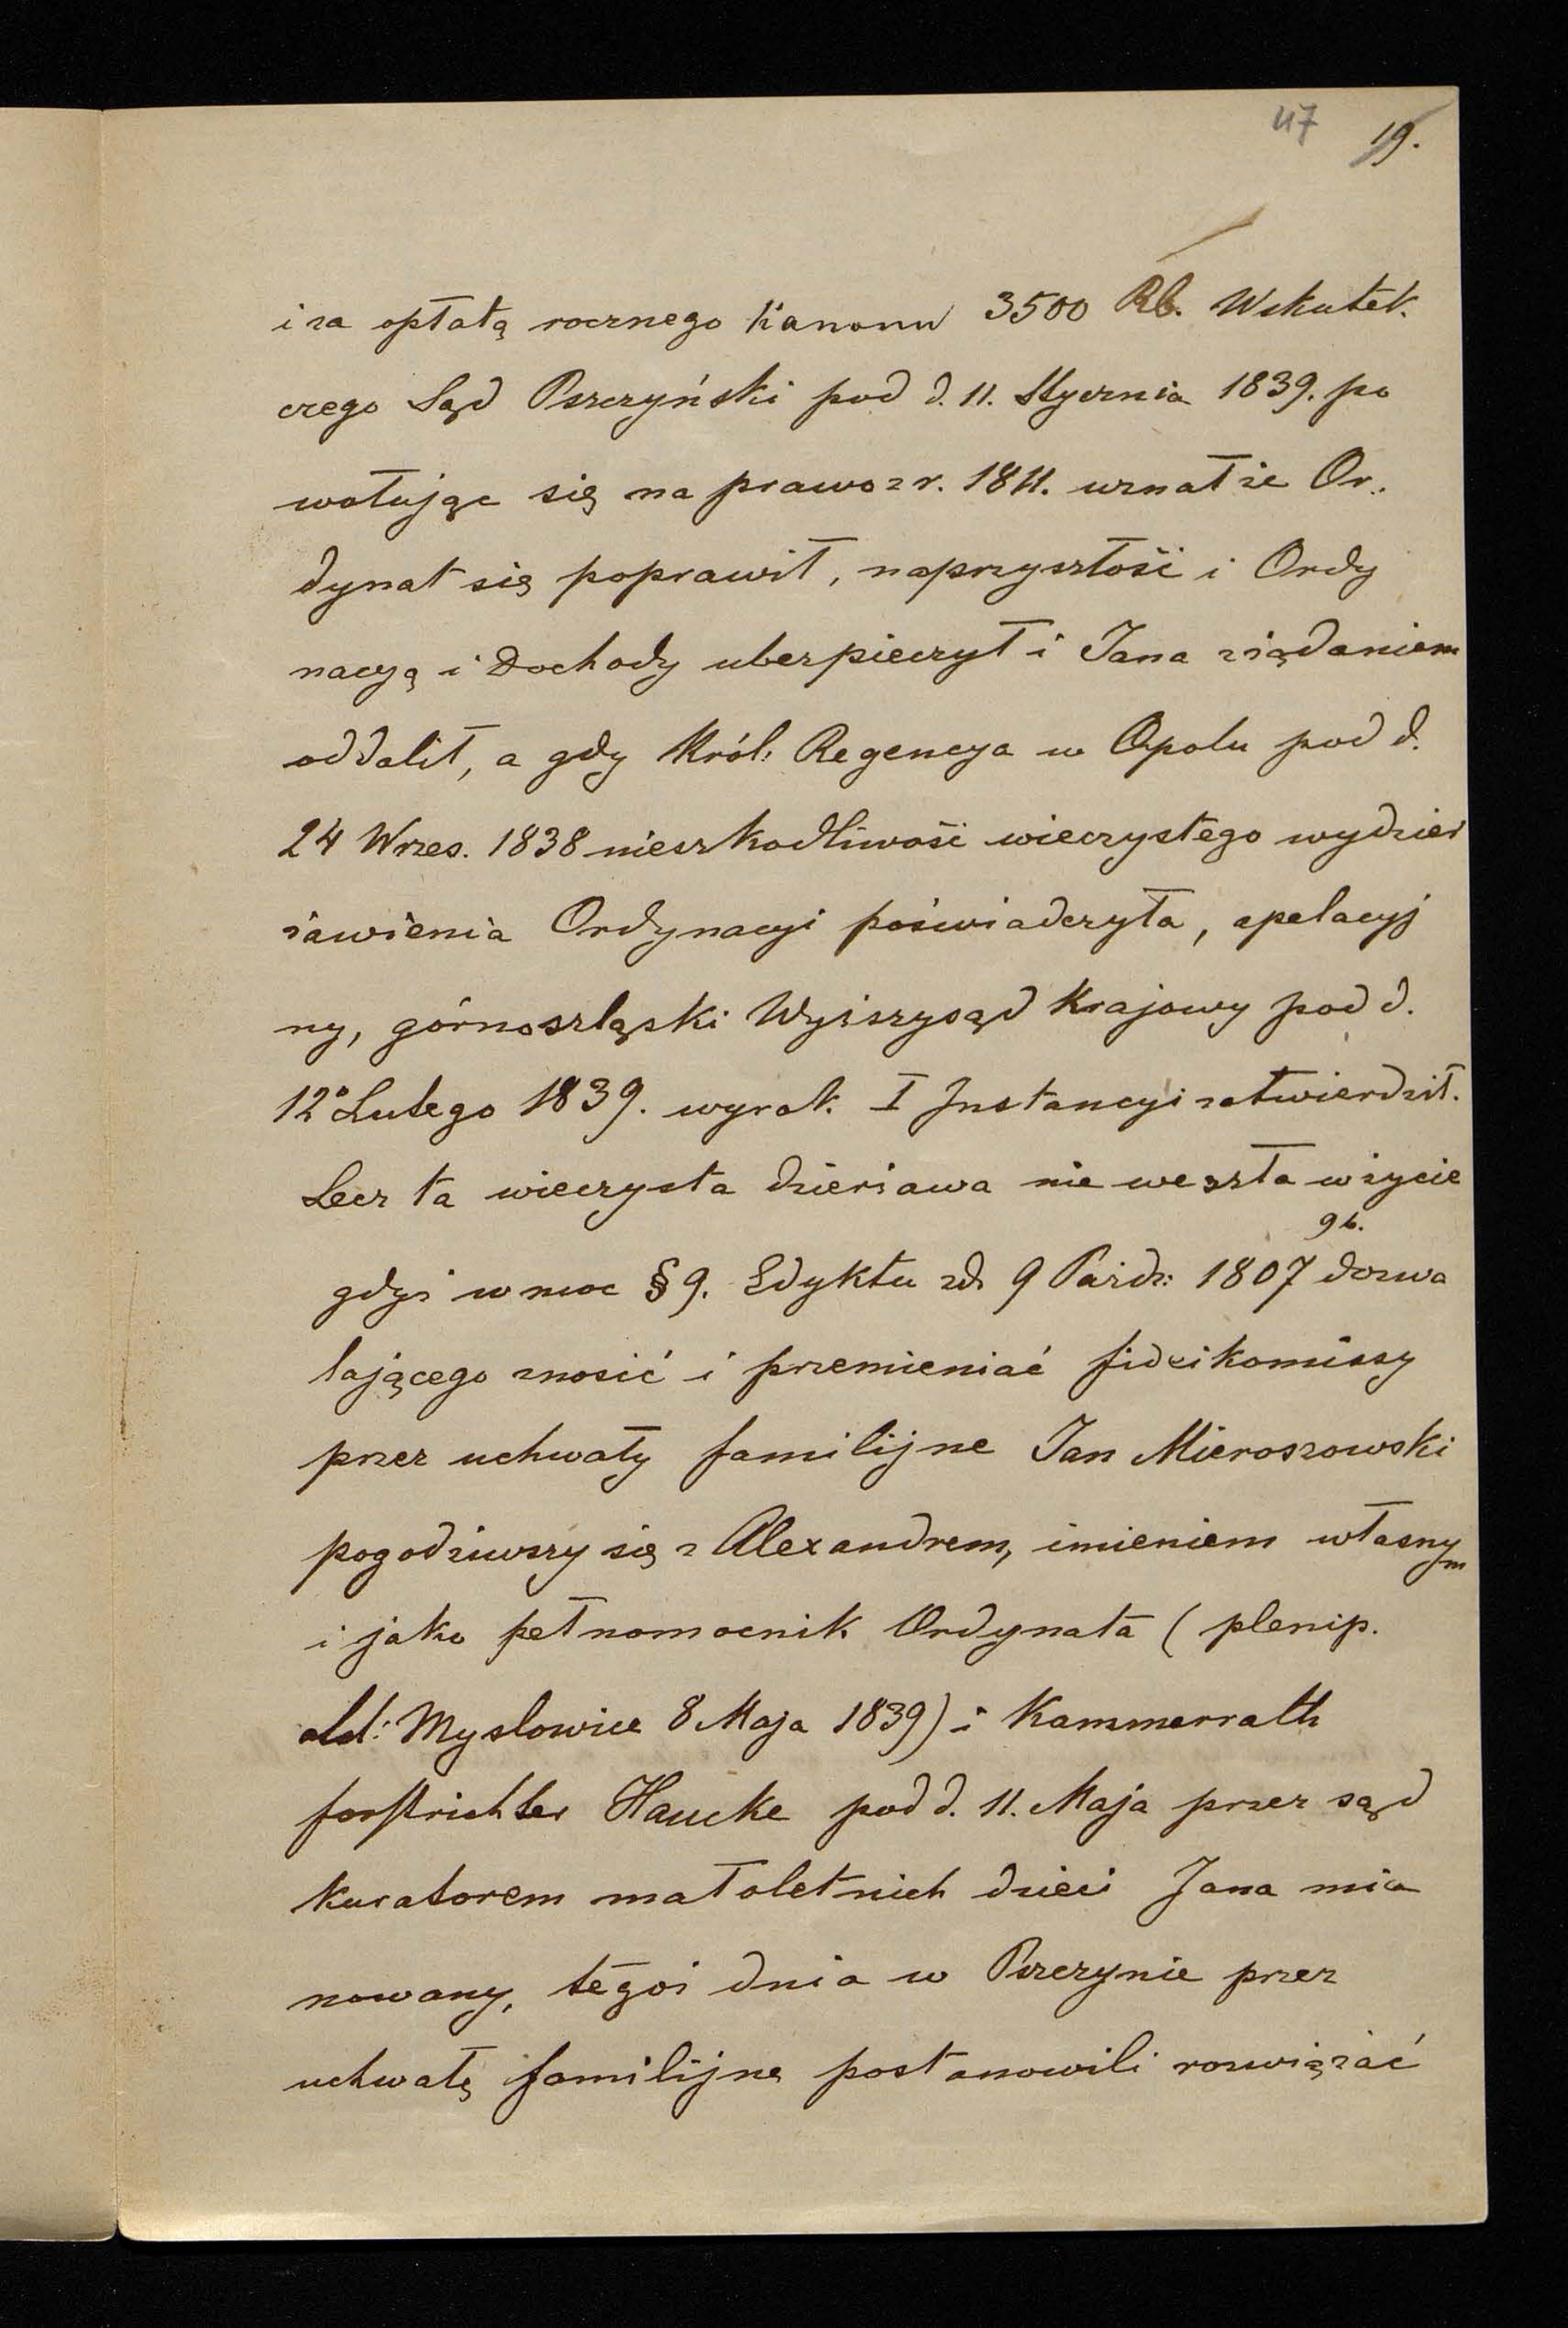 47 19.
i za opłatą rocznego Kanonu 3500 Rb. Wskutek
czego Sąd Pszczyński pod d. 11. Stycznia 1839. po
wołując się na prawo z r. 1811. uznał że Or.
dynat się poprawił, naprzyszłość i Ordy
nacyą i Dochody ubezpieczył i Jana z żądaniem
oddalił, a gdy Król: Regencya w Opolu pod d.
24 Wrzes. 1838 nieszkodliwość wieczystego wydzier
żawienia Ordynacyi poświadczyła, apelacyj
ny, górnoszląski Wyższy sąd Krajowy pod d.
12º Lutego 1839. wyrok I Instancyi zatwierdził.
Lecz ta wieczysta dzierżawa nie weszła w życie
9b.
gdyż w moc § 9. Edyktu zd. 9 Paźdz: 1807 dozwa
lającego znosić i przemieniać fideikomissy
przez uchwały familijne Jan Mieroszowski
pogodziwszy się z Alexandrem, imieniem własnym
i jako pełnomocnik Ordynata (plenip.
dd: Myslowice 8 Maja 1839) i Kammerrath
forstrichter Haucke pod d. 11. Maja przez sąd
kuratorem małoletnich dzieci Jana mia
nowany, tegoż dnia w Pszczynie przez
uchwałę familijną postanowili rozwiązać